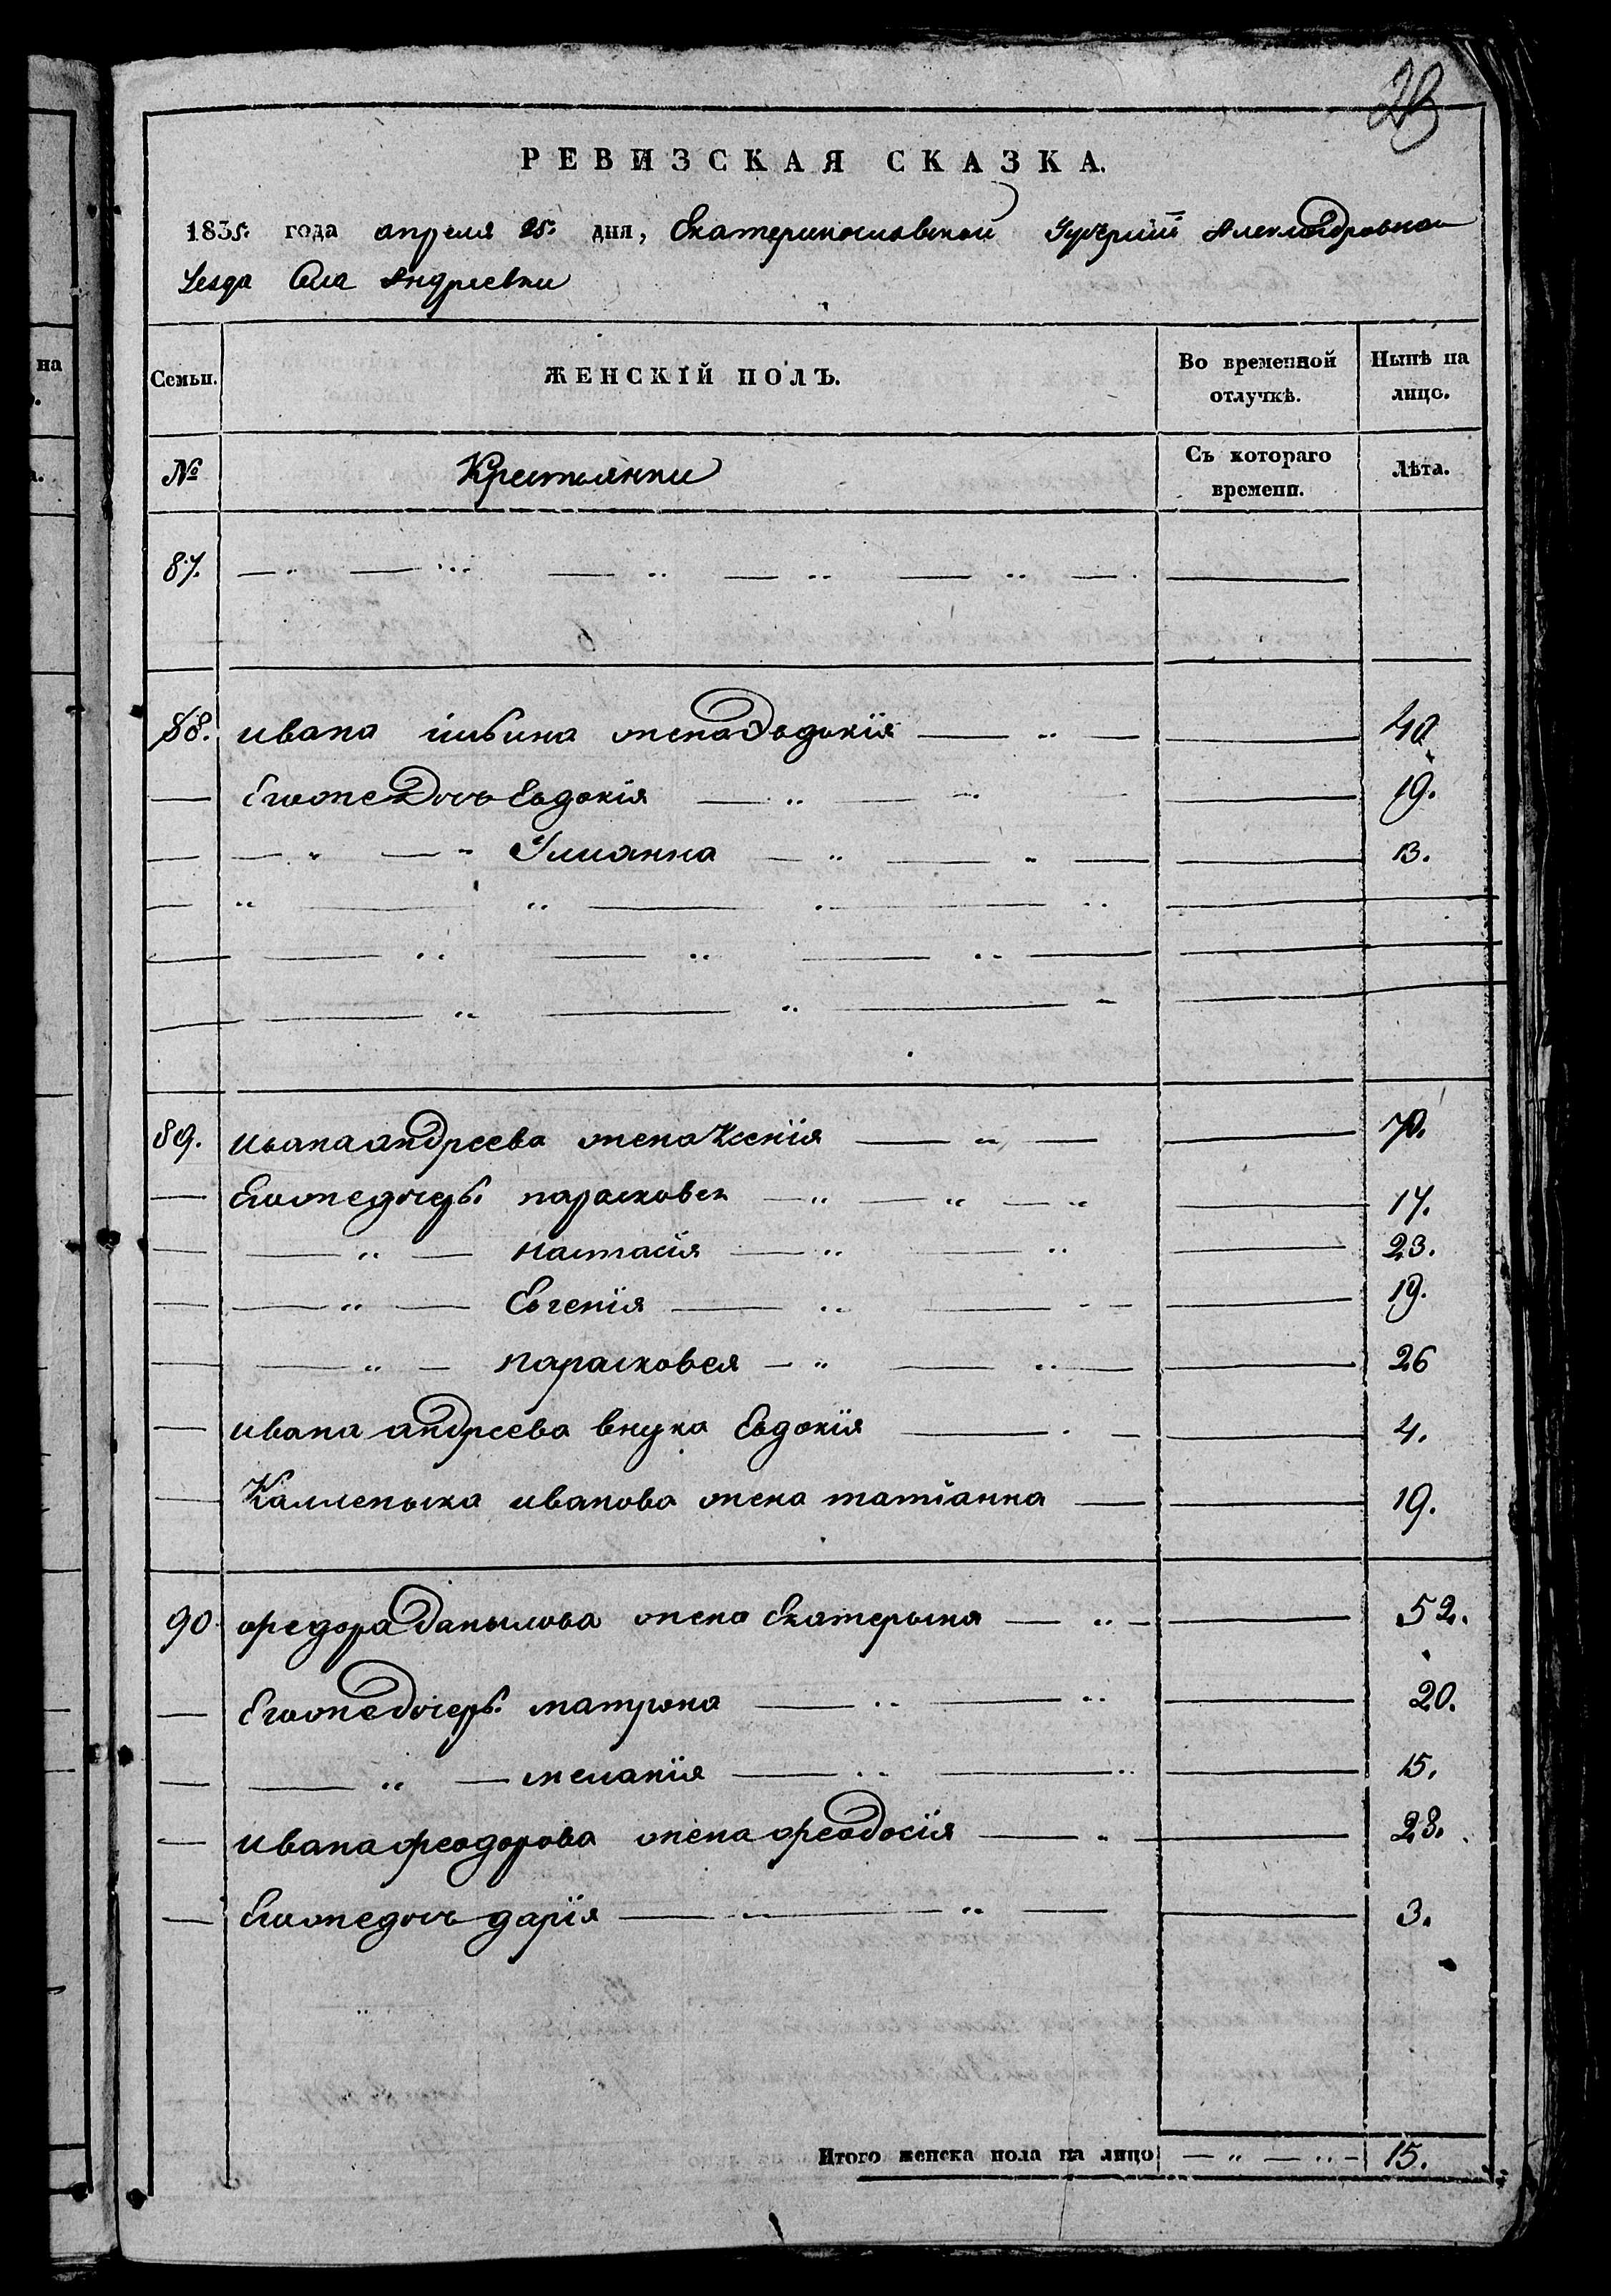 28
РЕВИЗСКАЯ СКАЗКА.
1835. года апреля 25. дня, Екатеринославской Губерніи Александровскои
Уезда Села Андреевки
Семьи.
ЖЕНСКІЙ ПОЛЪ.
Во временной отлучкѣ.
Нынѣ на лицо.
№
Крестьянки
Съ котораго времени.
Лѣта.
87.
88. ивана жена Эвдокія 40
Егоже Дочь Евдокія 19.
Улианна 13.
89. ивана андреева жена Ксенія 70.
Егоже дочерь. парасковея 17.
настасія 23.
Евгенія 19.
парасковея 26
ивана андреева внука Евдокія 4.
иванова жена татіанна 19.
90 федора Данылова жена Екатерына 52.
Егоже Дочерь. матрона 20.
меланія 15.
ивана феодорова жена феодосія 28.
Егоже дочь дарія 3.
Итого женска пола на лицо 15.
на